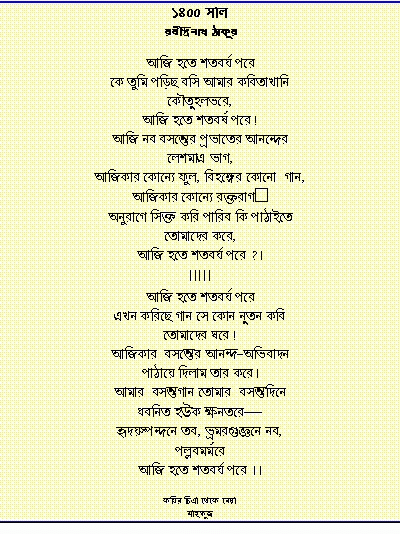 ১৪০০ সাল
রবীন্দ্রনাথ ঠাকুর
আজি হতে শতবর্ষ পরে
কে তুমি পড়িছ বসি আমার কবিতাখানি
কৌতুহলভরে,
আজি হতে শতবর্ষ পরে !
আজি নব বসন্তের প্রভাতের আনন্দের
লেশমাএ ভাগ,
আজিকার কোন্যে ফুল, বিহঙ্গের কোনো গান,
আজিকার কোন্যে রক্তরাগ
অনুরাগে সিক্ত করি পারিব কি পাঠাইতে
তোমাদের করে,
আজি হতে শতবর্ষ পরে ?।
।।।।।
আজি হতে শতবর্ষ পরে
এখন করিছে গান সে কোন নুতন কবি
তোমাদের ঘরে !
আজিকার বসন্তের আনন্দ-অভিবাদন
পাঠায়ে দিলাম তার করে।
আমার বসন্তগান তোমার বসন্তদিনে
ধবনিত হউক ক্ষনতরে—
হৃদয়স্পন্দনে তব, ভ্রমরগুঞ্জনে নব,
পল্লবমর্মরে
আজি হতে শতবর্ষ পরে ।।
থেকে নেয়া